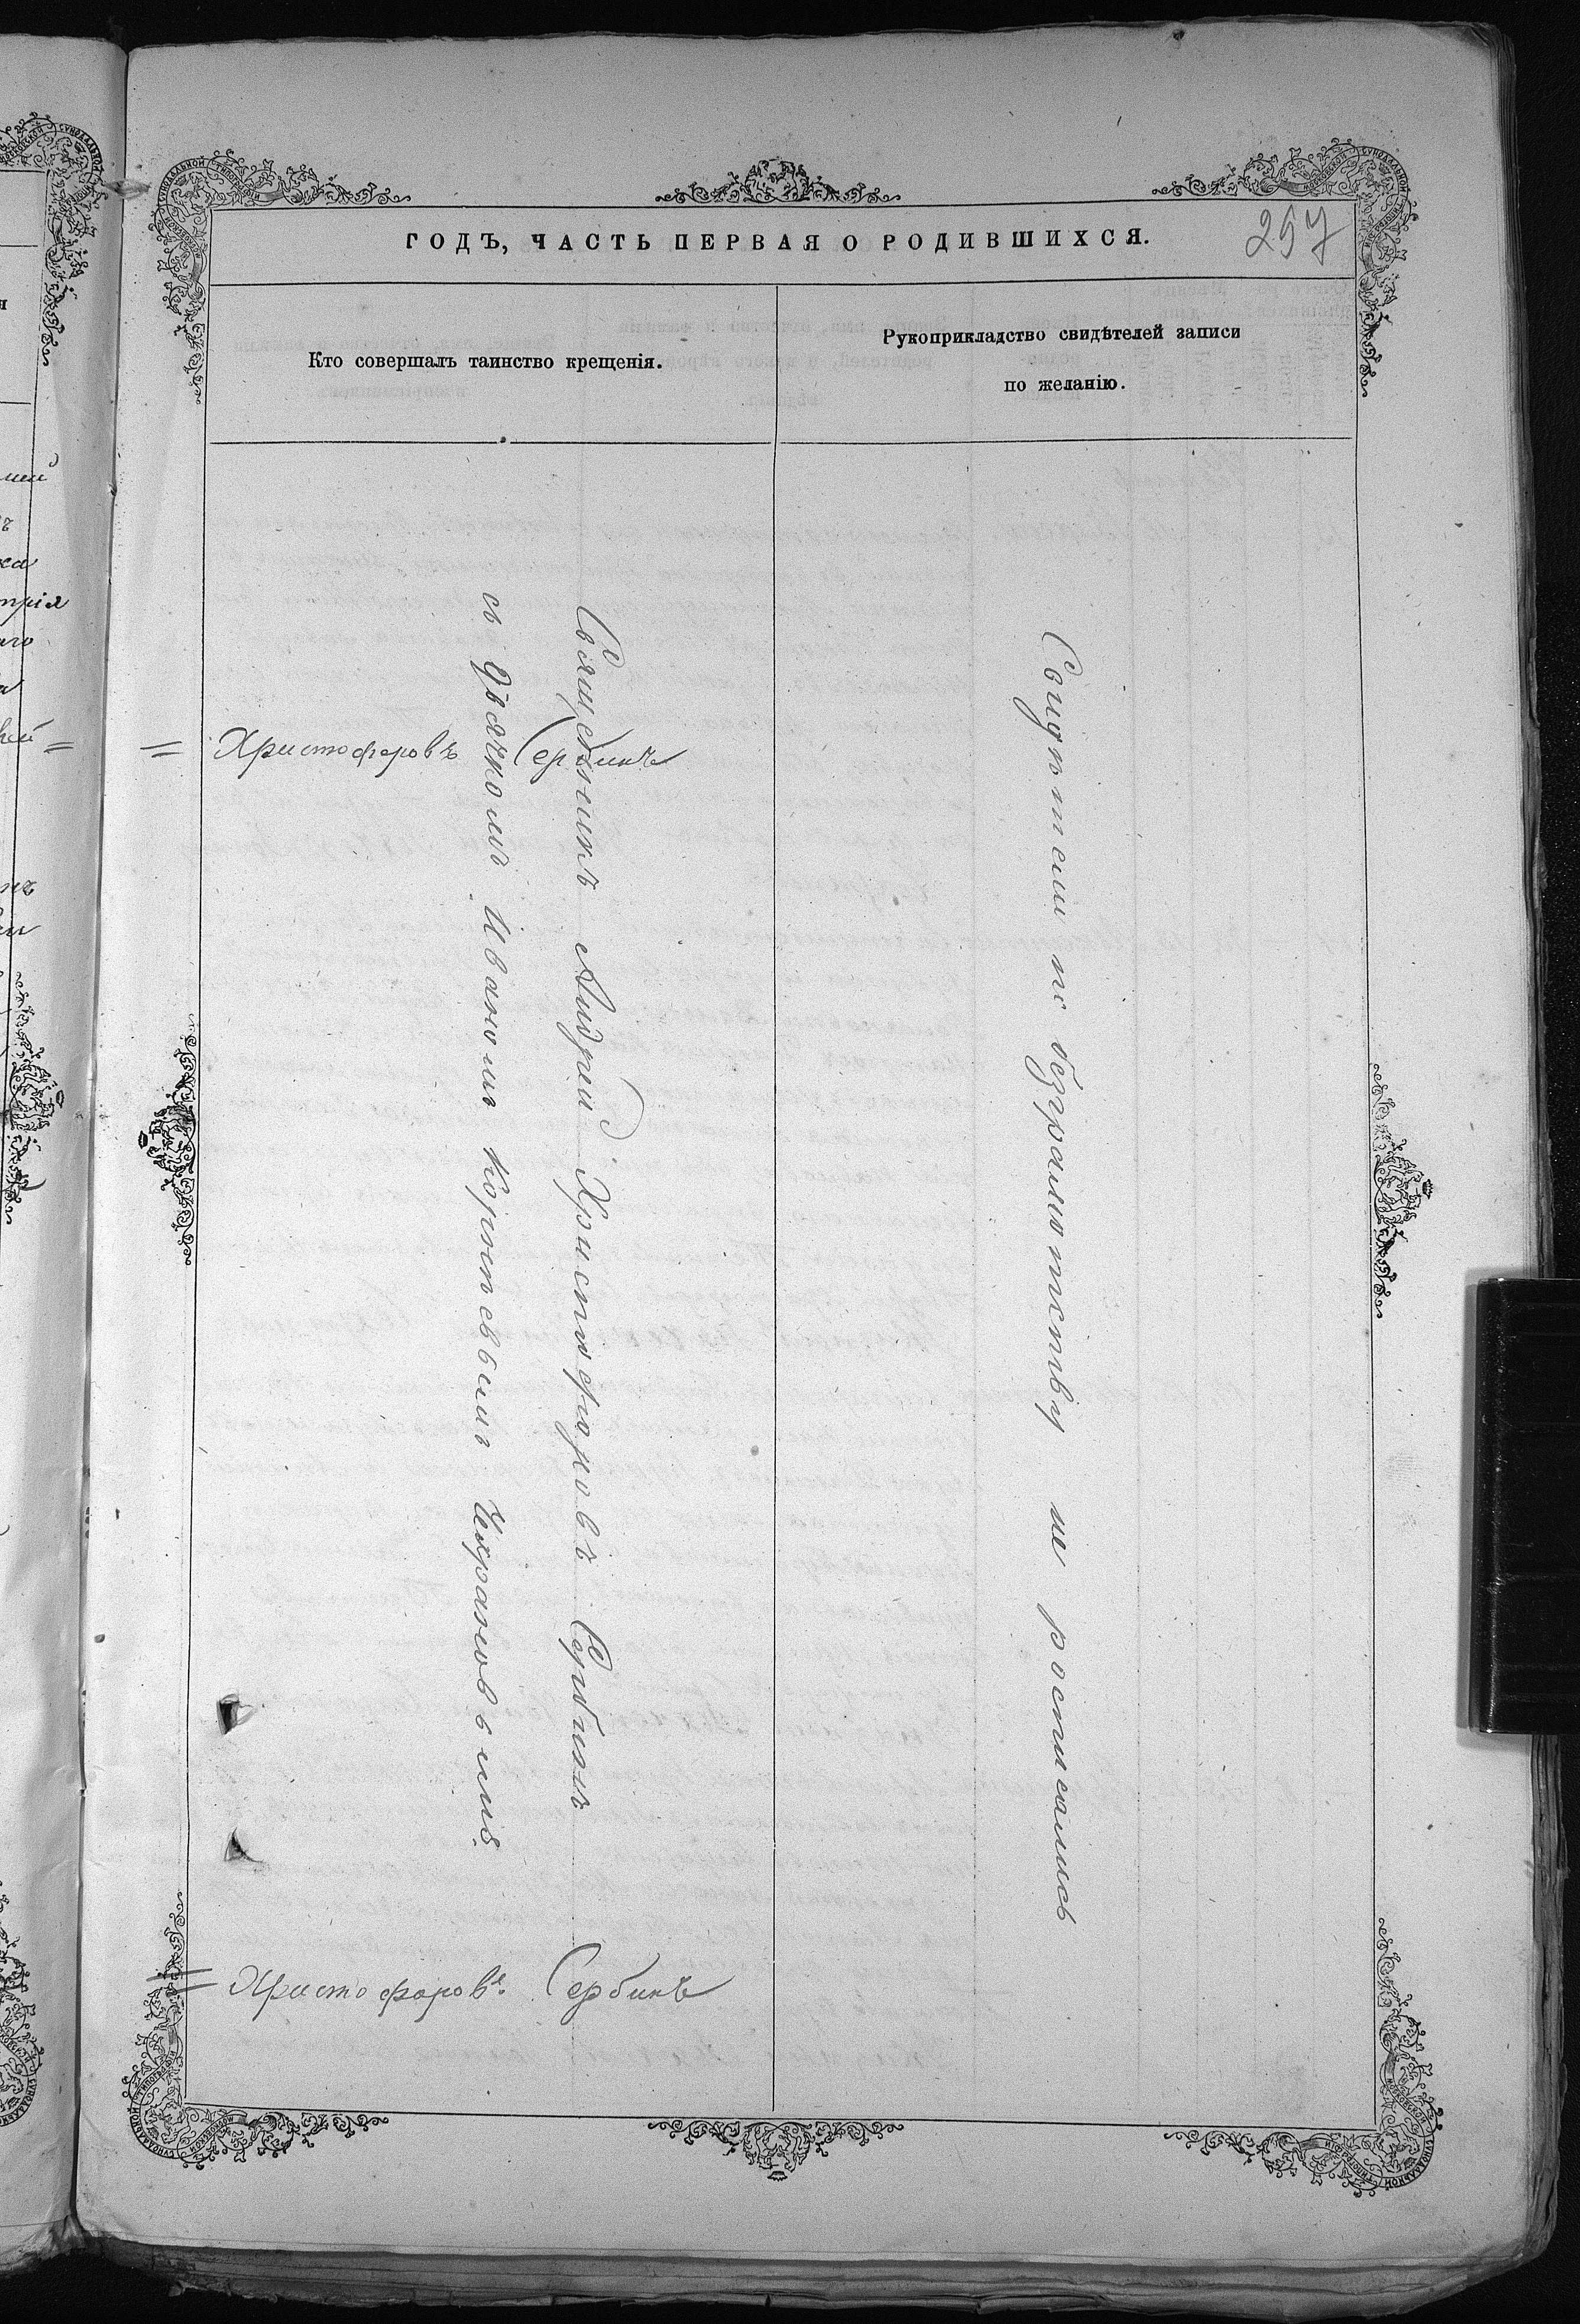 257
ГОДЪ, ЧАСТЬ ПЕРВАЯ О РОДИВШИХСЯ.
Кто совершалъ таинство крещенія.
Рукоприкладство свидѣтелей записи
по желанію.
Священникъ Андрей Христофоровъ Сербинъ
съ Дьячкомъ Иваномъ
= Христофоровъ Сербинъ
= Христофоровъ Сербинъ
Свидѣтели по безграмотству не росписались